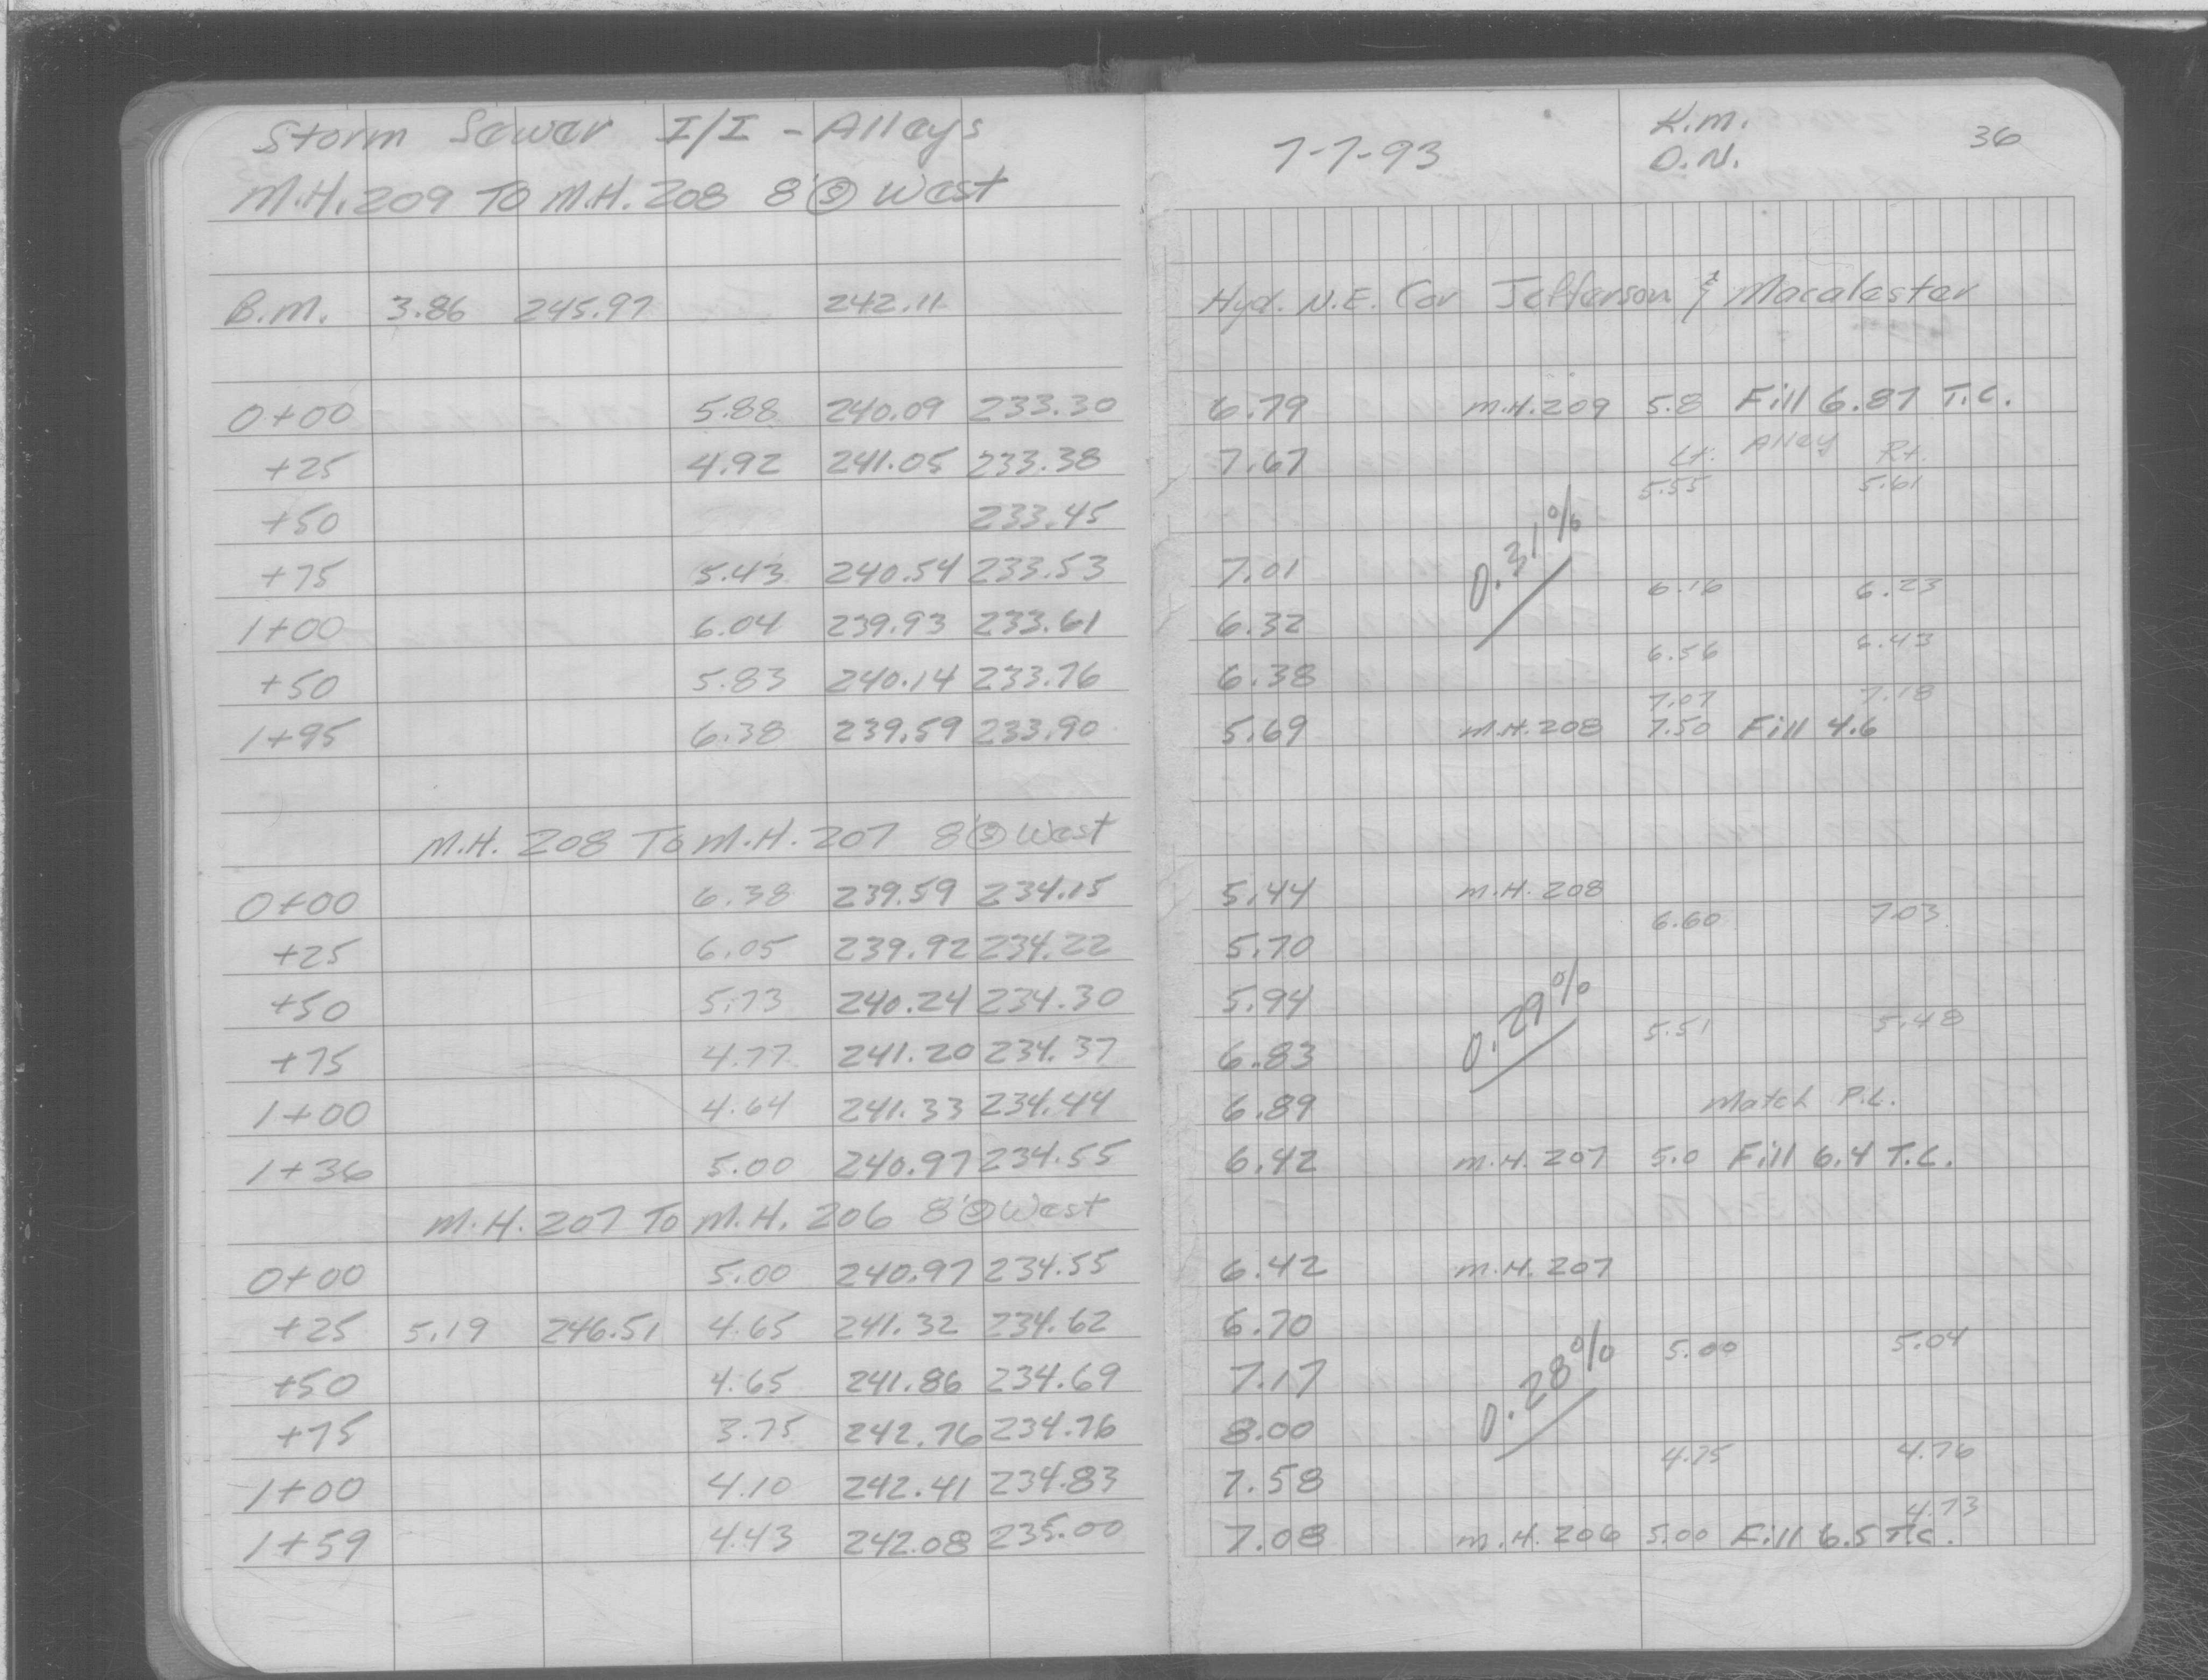 Storm Sewer I/I - Alleys
M.H. 209 TO M.H. 208 8' Ⓢ West
7-7-93 K.M. 36
D.N.
B.M. 3.86 245.97 242.11 Hyd. N.E. Cor Jefferson & Macalester
0+00 5.88 240.09 233.30 6.79 M.H. 209 5.8 Fill 6.87 T.C.
Lt. Alley Rt.
+25 4.92 241.05 233.38 7.67
5.55 5.61
+50 233.45
+75 5.43 240.54 233.53 7.01 0.31%
6.16 6.23
1+00 6.04 239.93 233.61 6.32
6.56 6.43
+50 5.83 240.14 233.76 6.38
7.07 7.18
1+95 6.38 239.59 233.90 5.69 M.H. 208 7.50 Fill 4.6
M.H. 208 To M.H. 207 8' Ⓢ West
0+00 6.38 239.59 234.15 5.44 M.H. 208
6.60 7.03
+25 6.05 239.92 234.22 5.70
+50 5.73 240.24 234.30 5.94 0.29%
5.51 5.48
+75 4.77 241.20 234.37 6.83
1+00 4.64 241.33 234.44 6.89 Match P.L.
1+36 5.00 240.97 234.55 6.42 M.H. 207 5.0 Fill 6.4 T.C.
M.H. 207 To M.H. 206 8' Ⓢ West
0+00 5.00 240.97 234.55 6.42 M.H. 207
+25 5.19 246.51 4.65 241.32 234.62 6.70
5.00 5.04
+50 4.65 241.86 234.69 7.17 0.28%
+75 3.75 242.76 234.76 8.00
4.75 4.76
1+00 4.10 242.41 234.83 7.58
4.73
1+59 4.43 242.08 235.00 7.08 M.H. 206 5.00 Fill 6.5 T.C.